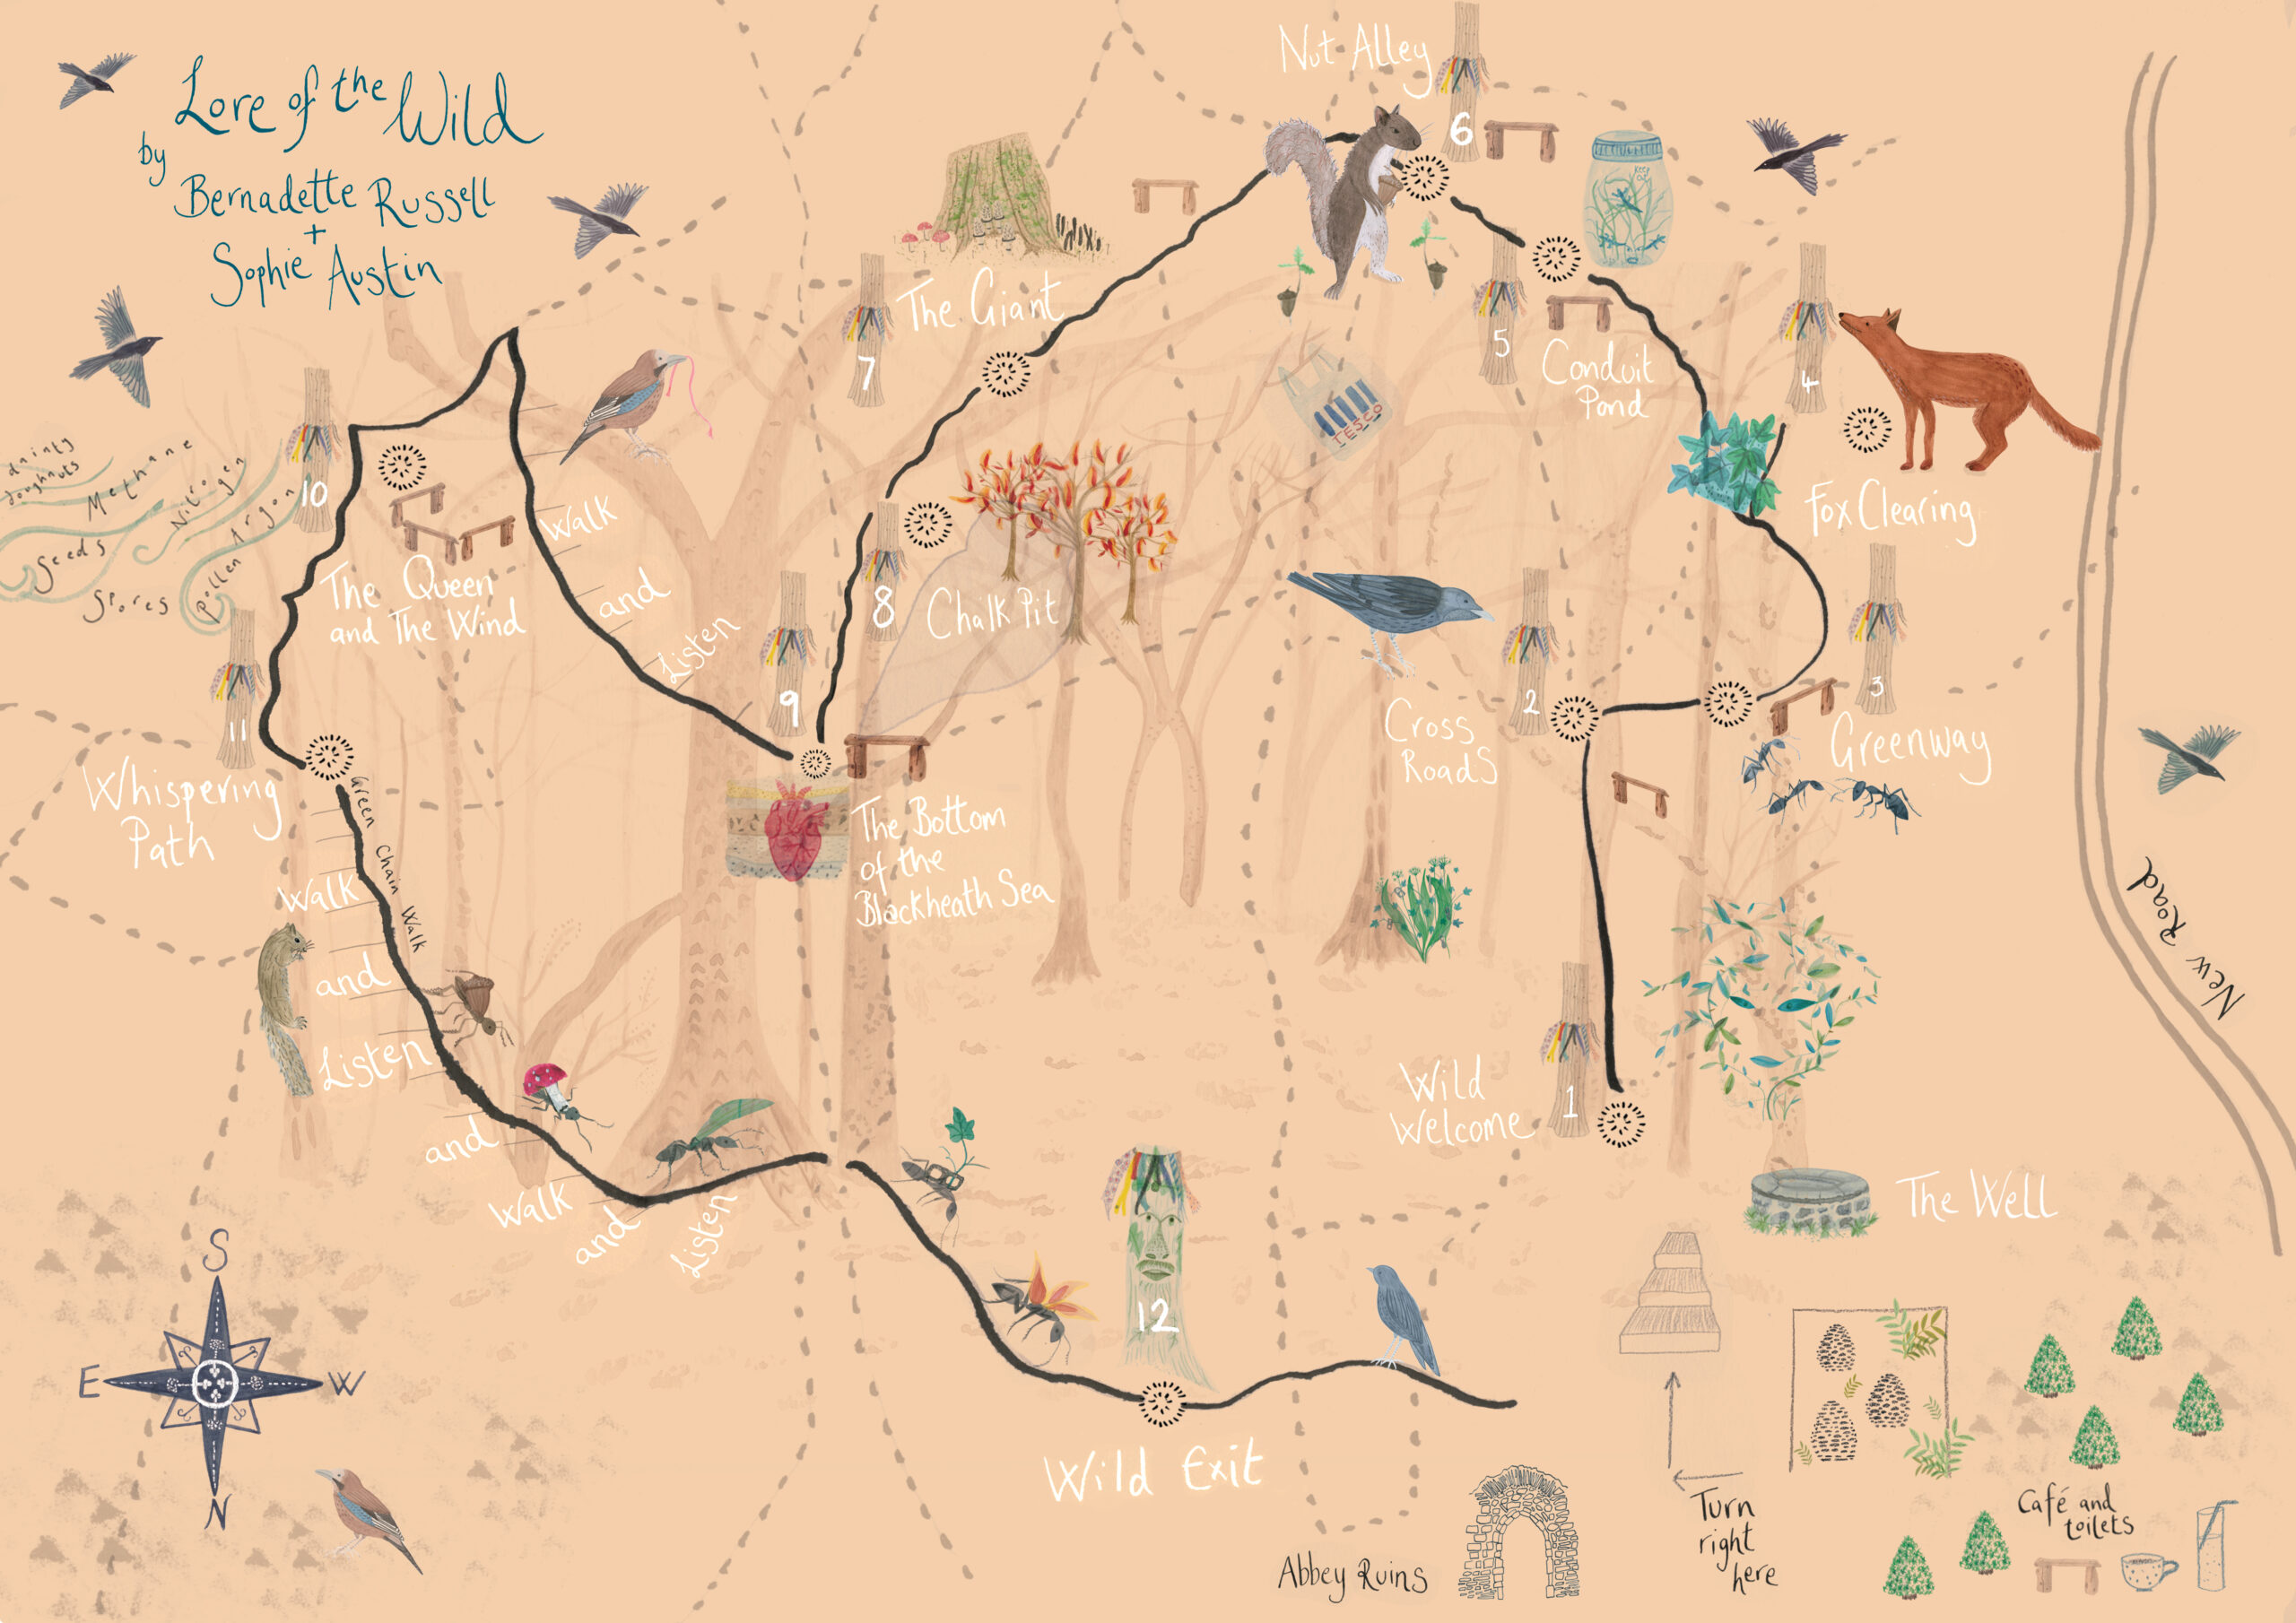 Lore of the Wild
by
Bernadette Russell
+
Sophie Austin
Nut Alley
6
The Giant
7
5
Conduit
Pond
4
Fox Clearing
TESCO
10
dainty
doughnuts
Methane
Nitrogen
Argon
Seeds
Spores
Pollen
The Queen
and The Wind
Walk
and
Listen
8
Chalk Pit
9
2
Cross
Roads
3
Greenway
11
Whispering
Path
The Bottom
of the
Blackheath Sea
Green Chain Walk
Walk
and
Listen
and
Walk
and
Listen
Wild
Welcome
1
The Well
New Road
12
Wild Exit
S
E
W
N
Abbey Ruins
Turn
right
here
Café and
toilets